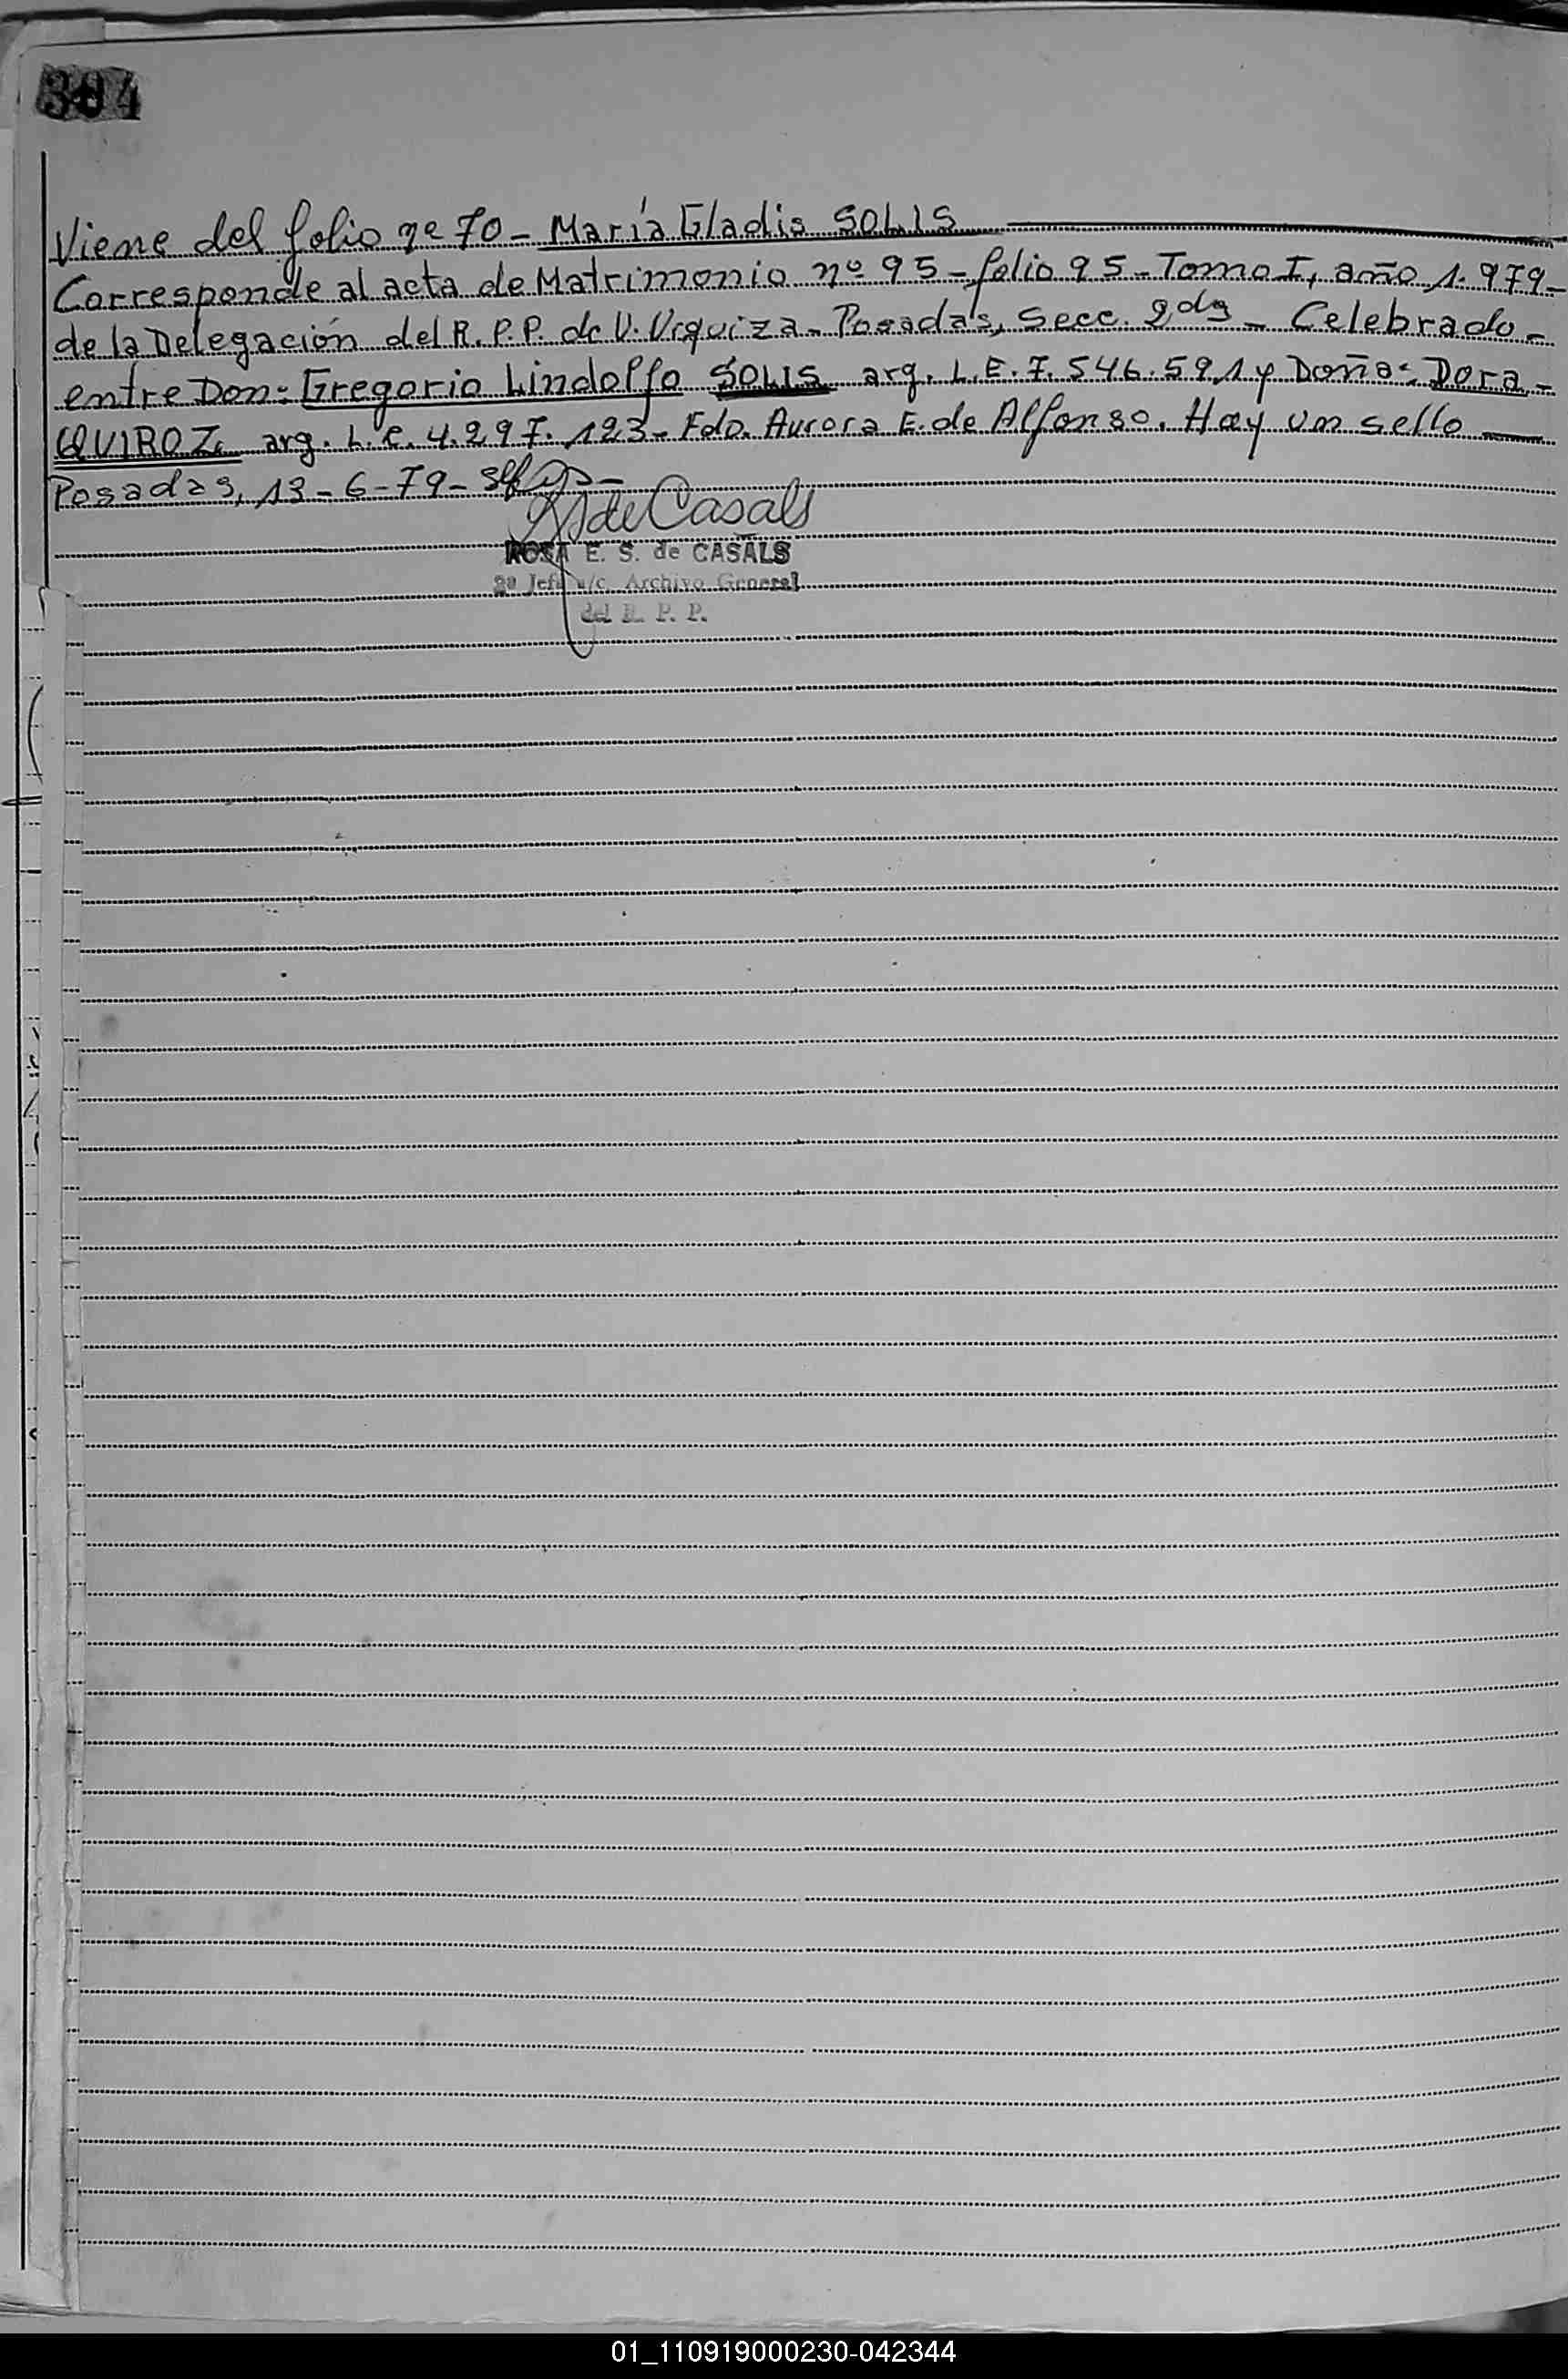 304
Viene del folio nº 70 - María Gladis SOLIS
Corresponde al acta de Matrimonio nº 95 - folio 95 - Tomo I, año 1.979 -
de la Delegación del R. P. P. de V. Urquiza - Posadas, Secc. 2da - Celebrado -
entre Don: Gregorio Lindolfo SOLIS arg. L. E. 7.546.591 y Doña: Dora -
QUIROZ arg. L. C. 4.297.123 - Fdo. Aurora E. de Alfonso. Hay un sello
Posadas, 13-6-79 -
de Casals
ROSA E. S. de CASALS
2º Jefe a/c. Archivo General
del R. P. P.
01_110919000230-042344